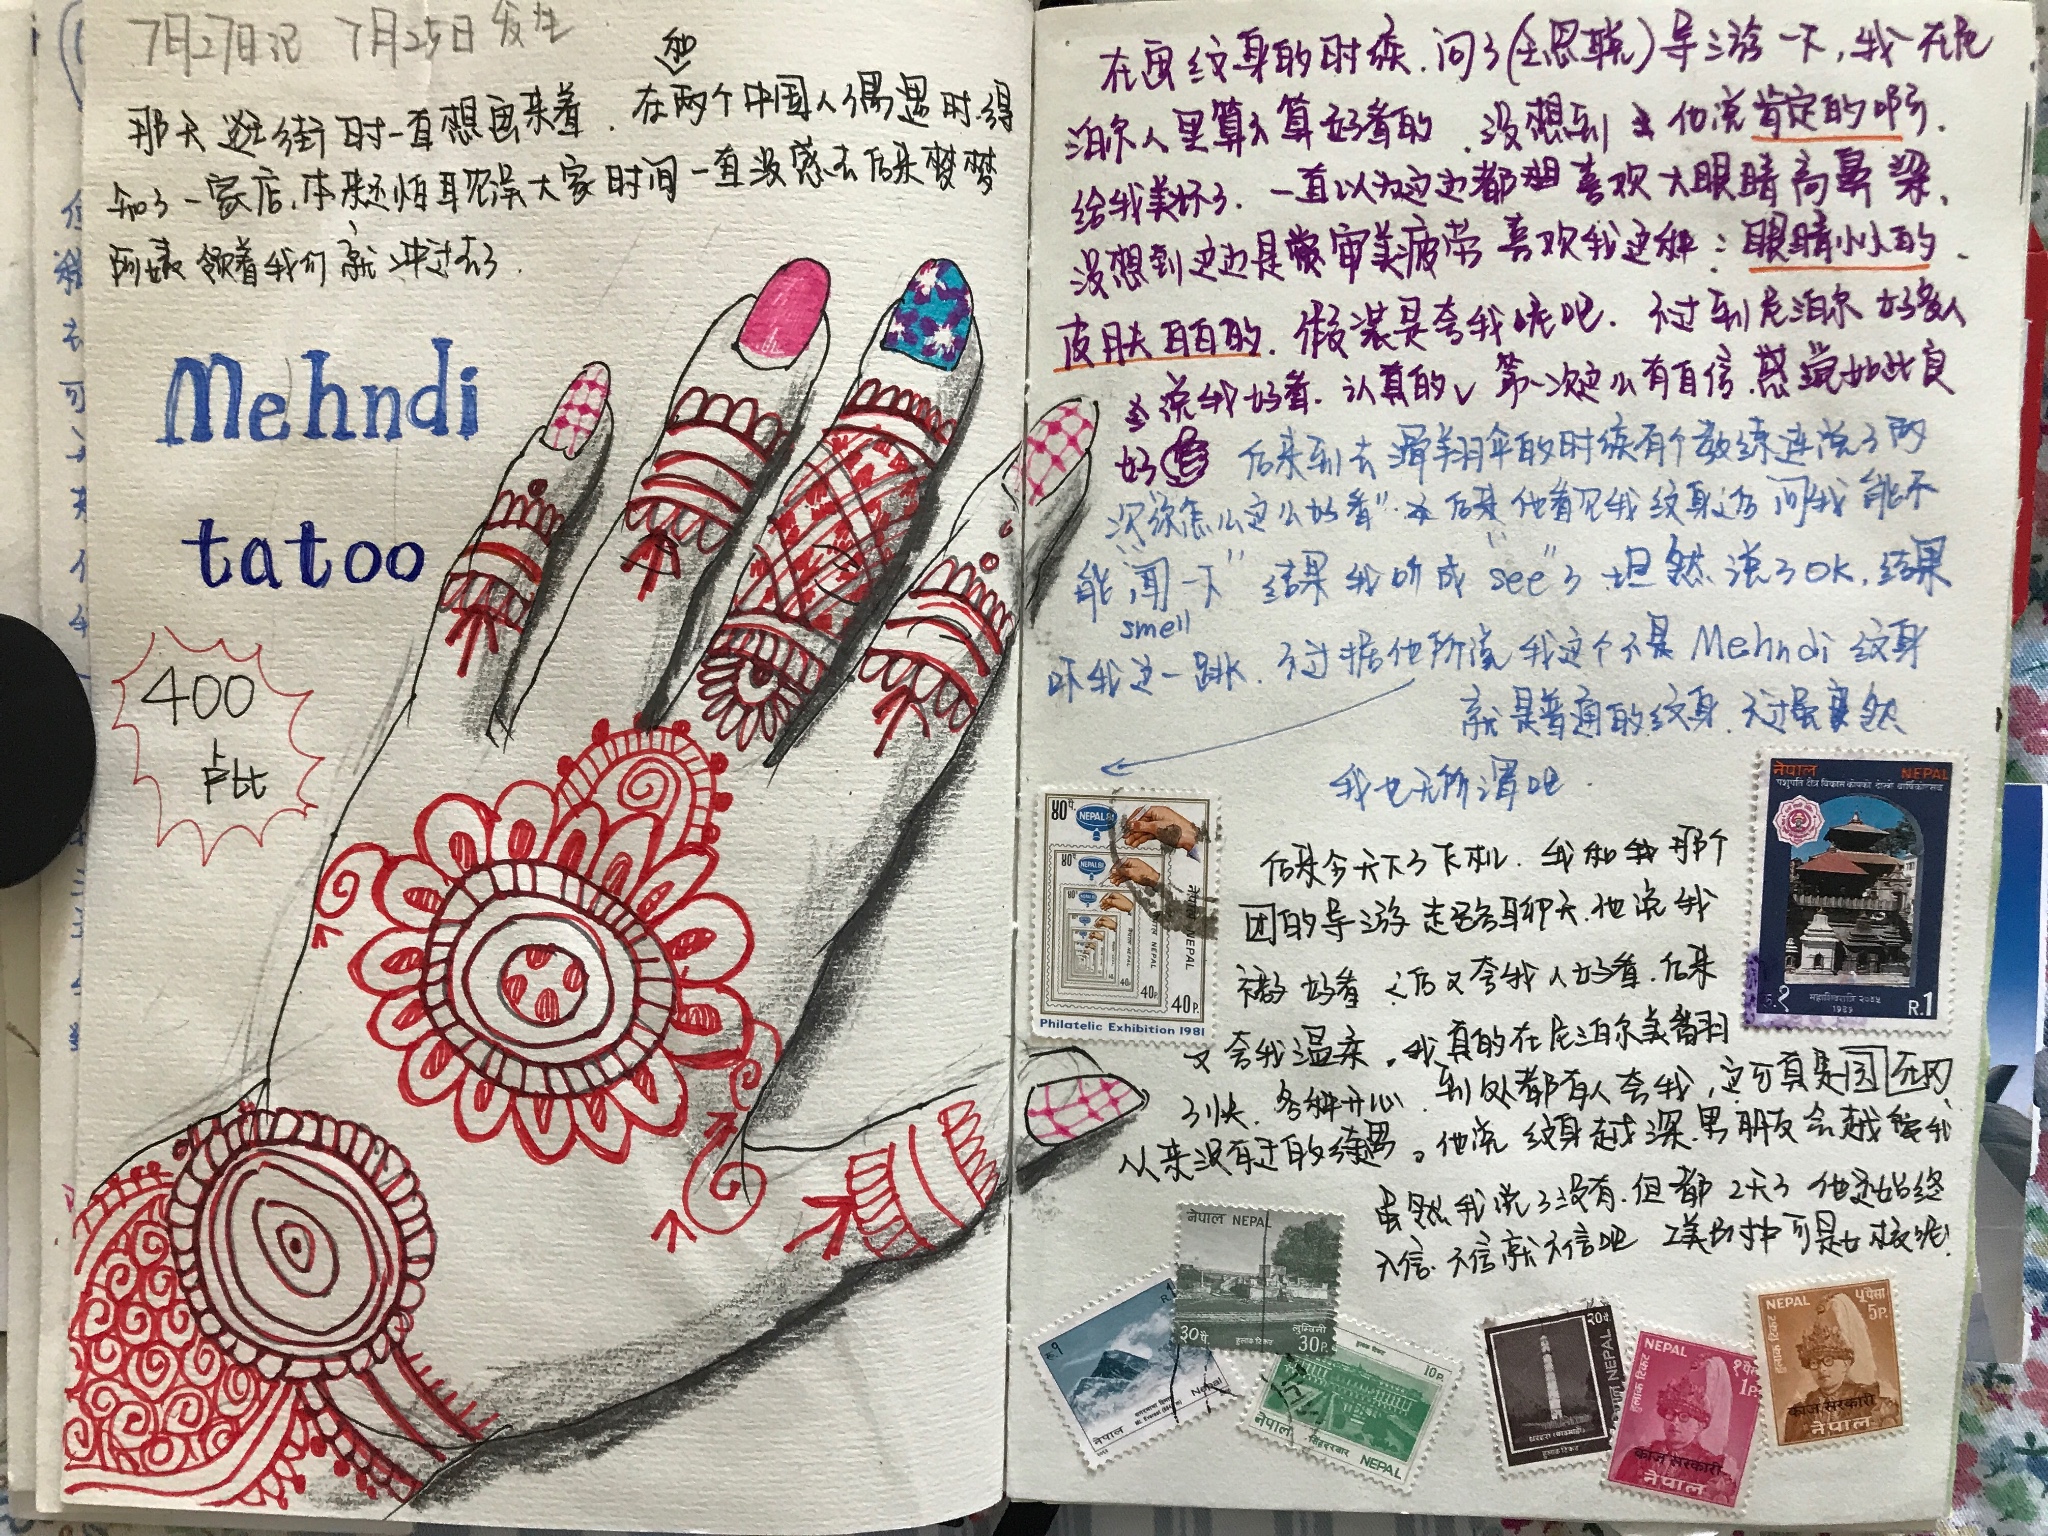 7月27日记 7月25日发生
那天逛街时一直想画来着.在两个中国人偶遇时.得
知了一家店.本来还怕耽误大家时间一直没敢去后来梦梦
阿姨领着我们就冲过去了.
Mehndi
tatoo
400
卢比
在画纹身的时候.问了()导游一下,我在尼
泊尔人里算不算好看的.没想到他说肯定的啊.
给我美坏了.一直以为这边都喜欢大眼睛高鼻梁.
没想到这边是审美疲劳喜欢我这种:眼睛小小的.
皮肤白白的.假装是夸我呢吧.不过到尼泊尔好多人
说我好看.认真的第一次这么有自信.感觉如此良
好
后来到去滑翔伞的时候有个教练连说了两
次"你怎么这么好看"后来他看见我纹身还问我能不
能"闻一下"结果我听成"see"了.坦然说了OK.结果
smell
吓我这一跳.不过据他所说我这个不是Mehndi纹身
就是普通的纹身.不过虽然
我也无所谓吧.
后来今天下了飞机.我和我那个
团的导游走路聊天.他说我
裤子好看之后又夸我人好看.后来
又夸我温柔.我真的在尼泊尔美翻
了快.各种开心.到处都有人夸我,这可真是国内
从来没有过的待遇。他说纹身越深.男朋友会越爱我
虽然我说了没有.但都2天了他还始终
不信.不信就不信吧
NEPAL 81
40P.
नेपाल NEPAL
Philatelic Exhibition 1981
नेपाल NEPAL
पशुपति क्षेत्र विकास कोषको दोस्रो वार्षिकोत्सव
महाशिवरात्रि २०४५
1989
रु.१ R.1
नेपाल NEPAL
३०पै. लुम्बिनी 30P.
हुलाक टिकट
रु.१
Mt. Everest
नेपाल Nepal
10P.
सिंहदरबार
नेपाल NEPAL
२०पै
नेपाल NEPAL
धरहरा (काठमाडौं)
हुलाक टिकट
NEPAL १ पैसा
1P.
हुलाक टिकट
काज सरकारी
नेपाल
NEPAL ५ पैसा
5P.
हुलाक टिकट
काज सरकारी
नेपाल